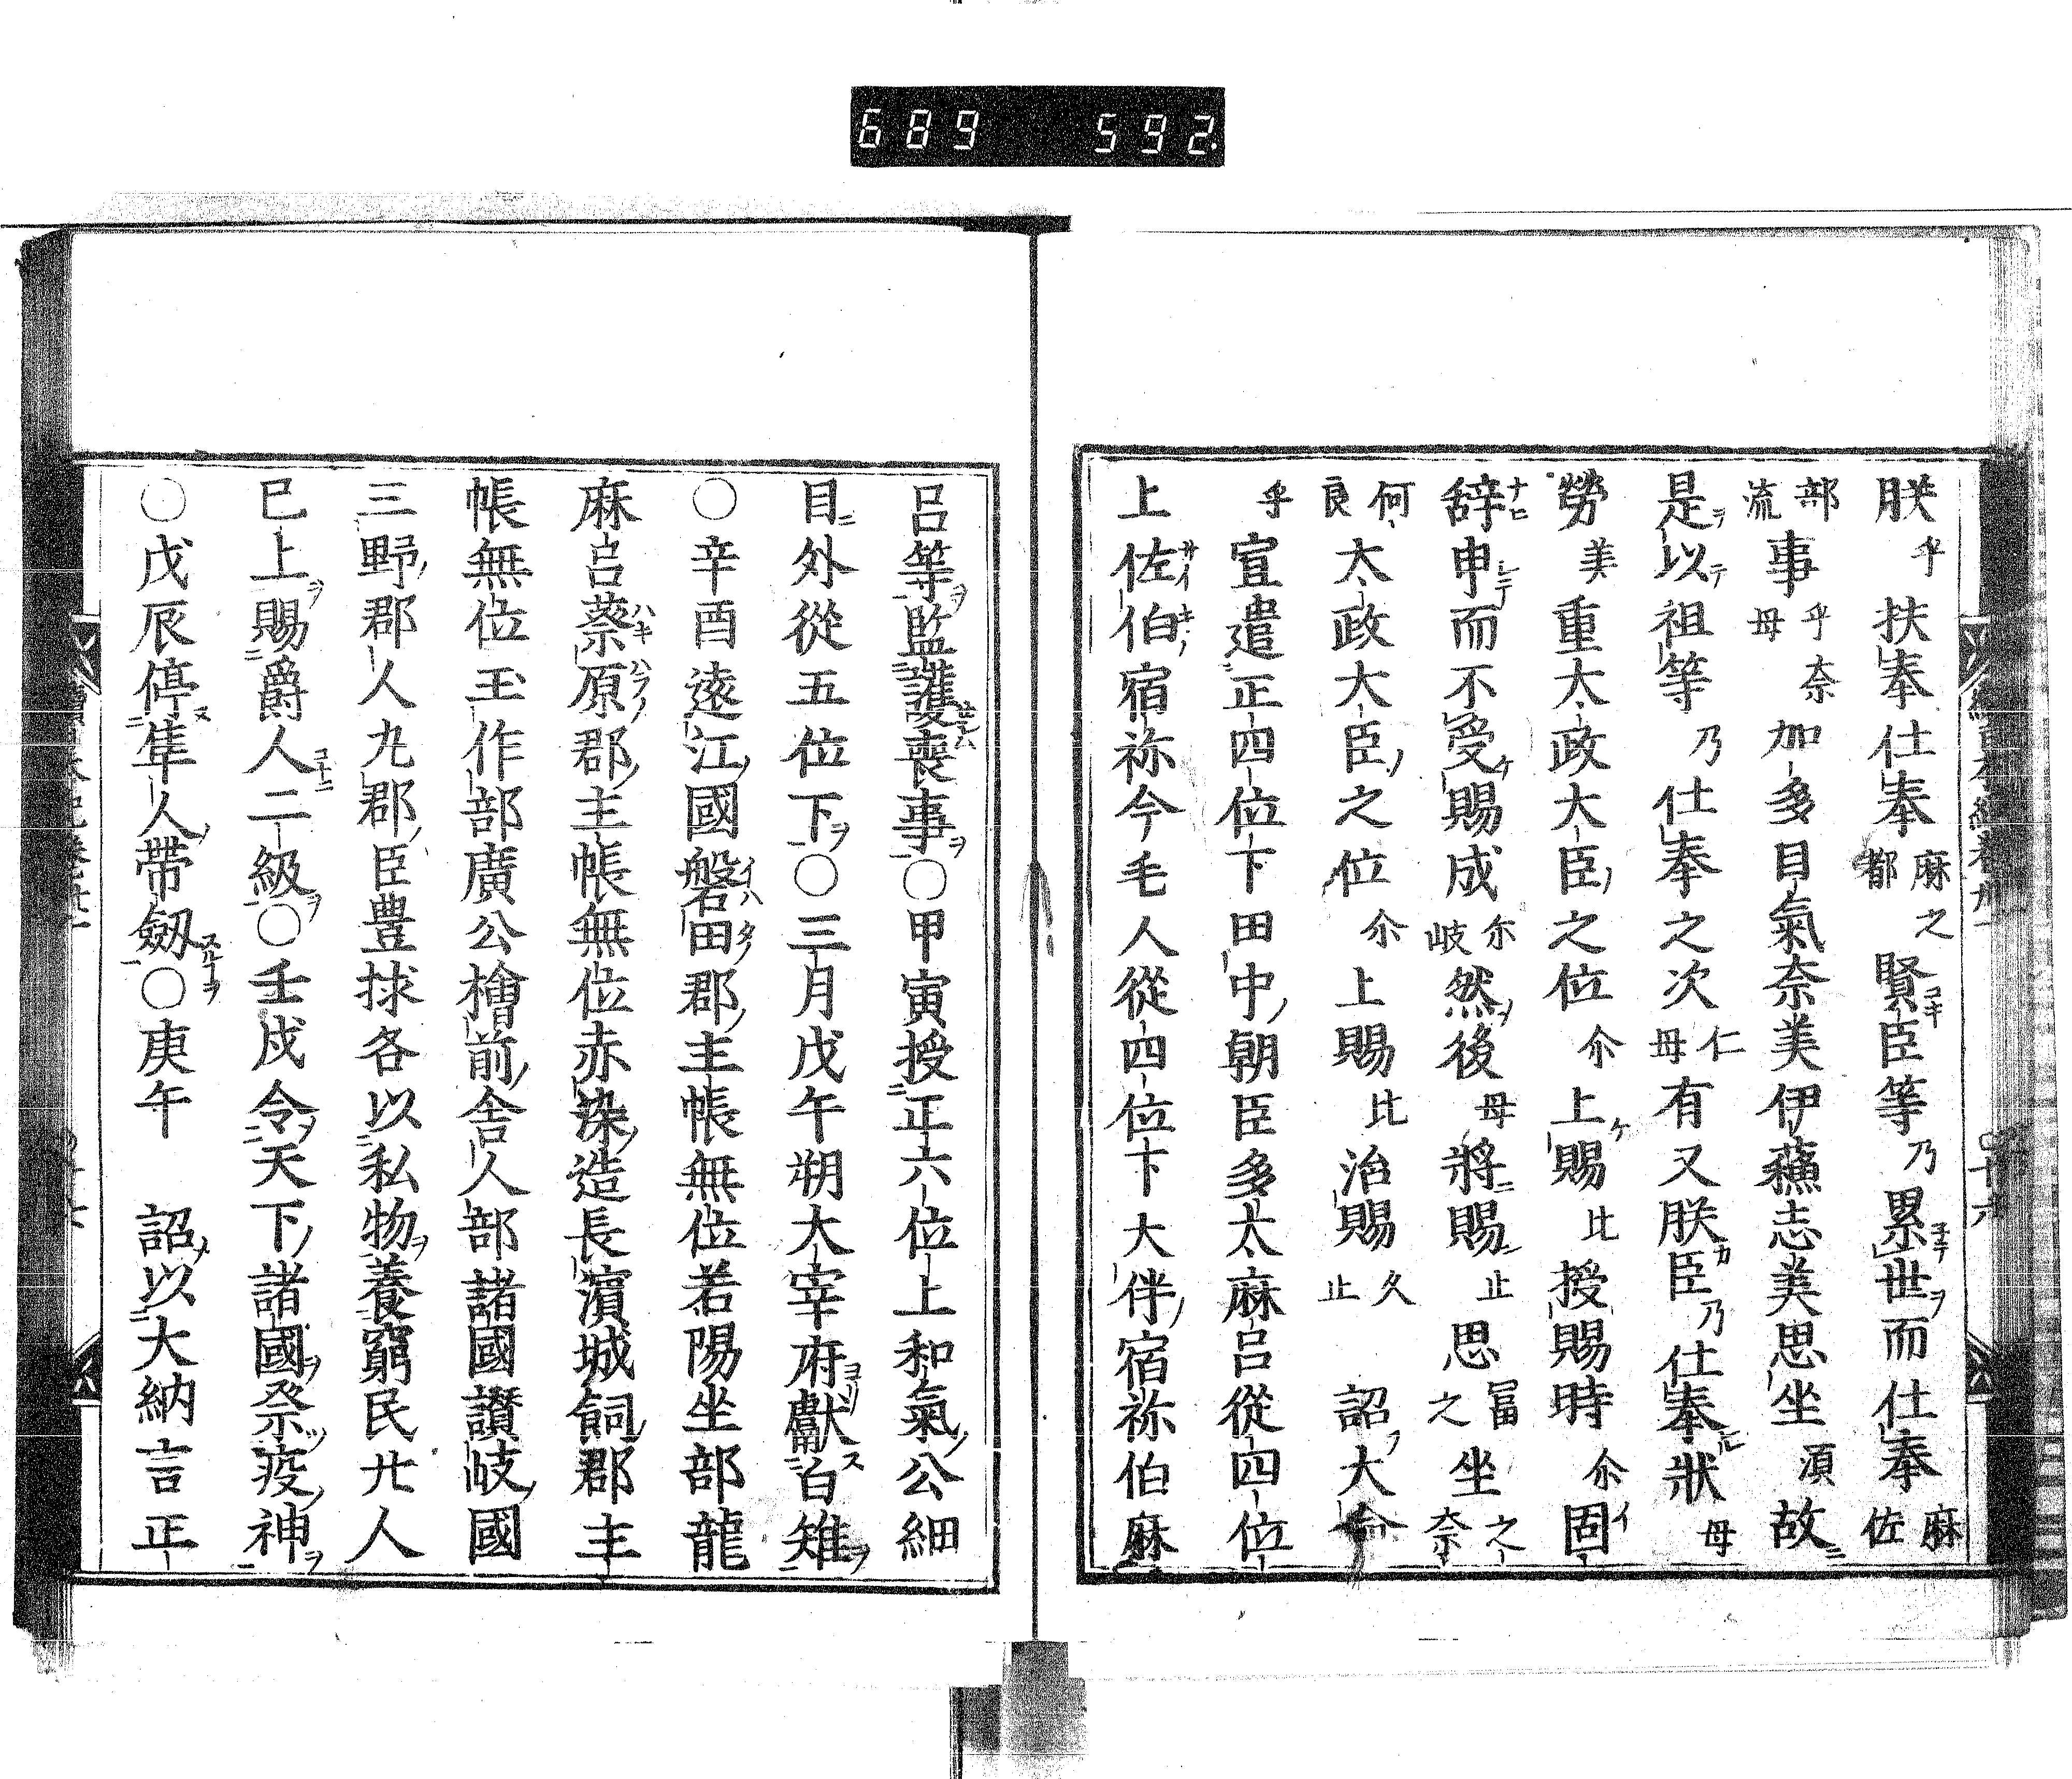 689 592
朕乎扶奉仕奉麻都之賢臣等乃累世而仕奉麻佐
部流事乎奈母加多自氣奈美伊蘓志美思坐湏故
是以祖等乃仕奉之次仁母有又朕臣乃仕奉狀母
勞美重太政大臣之位尒上賜比授賜時尒固
辞申而不受賜成尒岐然後母將賜止思冨之坐之奈
何良太政大臣之位尒上賜比治賜久止 詔大命
乎宣遣正四位下田中朝臣多太麻呂從四位
上佐伯宿祢今毛人從四位下大伴宿祢伯麻
呂等監護喪事○甲寅授正六位上和氣公細
目外從五位下○三月戊午朔大宰府獻白雉
○辛酉遠江國磐田郡主帳無位若陽坐部龍
麻呂蓁原郡主帳無位赤染造長濵城飼郡主
帳無位玉作部廣公檜前舍人部諸國讃岐國
三野郡人丸郡臣豊捄各以私物養窮民廿人
已上賜爵人二級○壬戌令天下諸國祭疫神
○戊辰停隼人帶劔○庚午 詔以大納言正